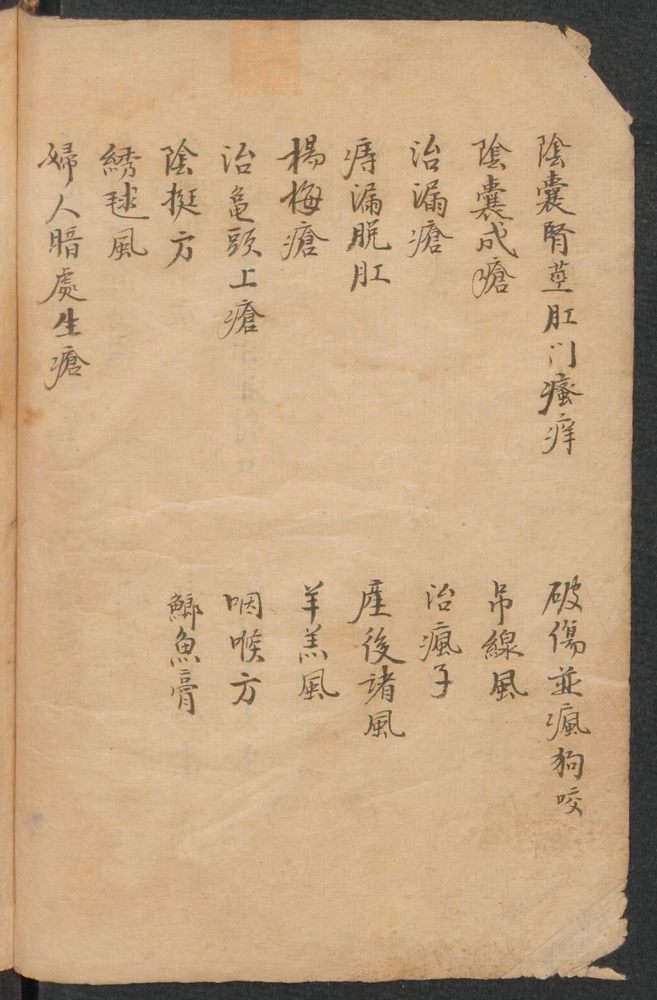 陰囊腎莖肛门瘙痒
陰囊成瘡
治漏瘡
痔漏脱肛
楊梅瘡
治龟頭上瘡
陰挺方
綉毬風
婦人暗處生瘡
破傷並瘋狗咬
吊線風
治瘋子
産後諸風
羊羔風
咽喉方
魚膏